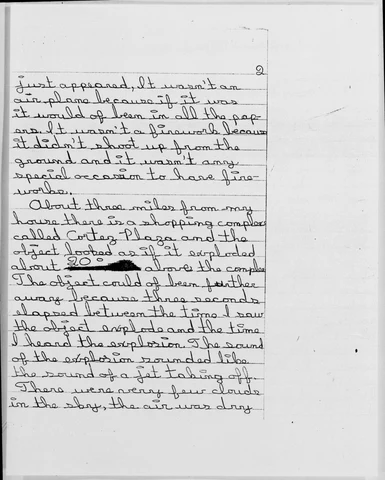 2
just appeared, It wasn't an
air plane because if it was
it would of been in all the pap-
ers. It wasn't a firework because
it didn't shoot up from the
ground and it wasn't any
special occasion to have fire-
works.
About three miles from my
house there is a shopping complex
called Cortez Plaza and the
object looked as if it exploded
about 20° above the complex
The object could of been further
away because three seconds
elapsed between the time I saw
the object explode and the time
I heard the explosion. The sound
of the explosion sounded like
the sound of a jet taking off.
There were very few clouds
in the sky, the air was dry